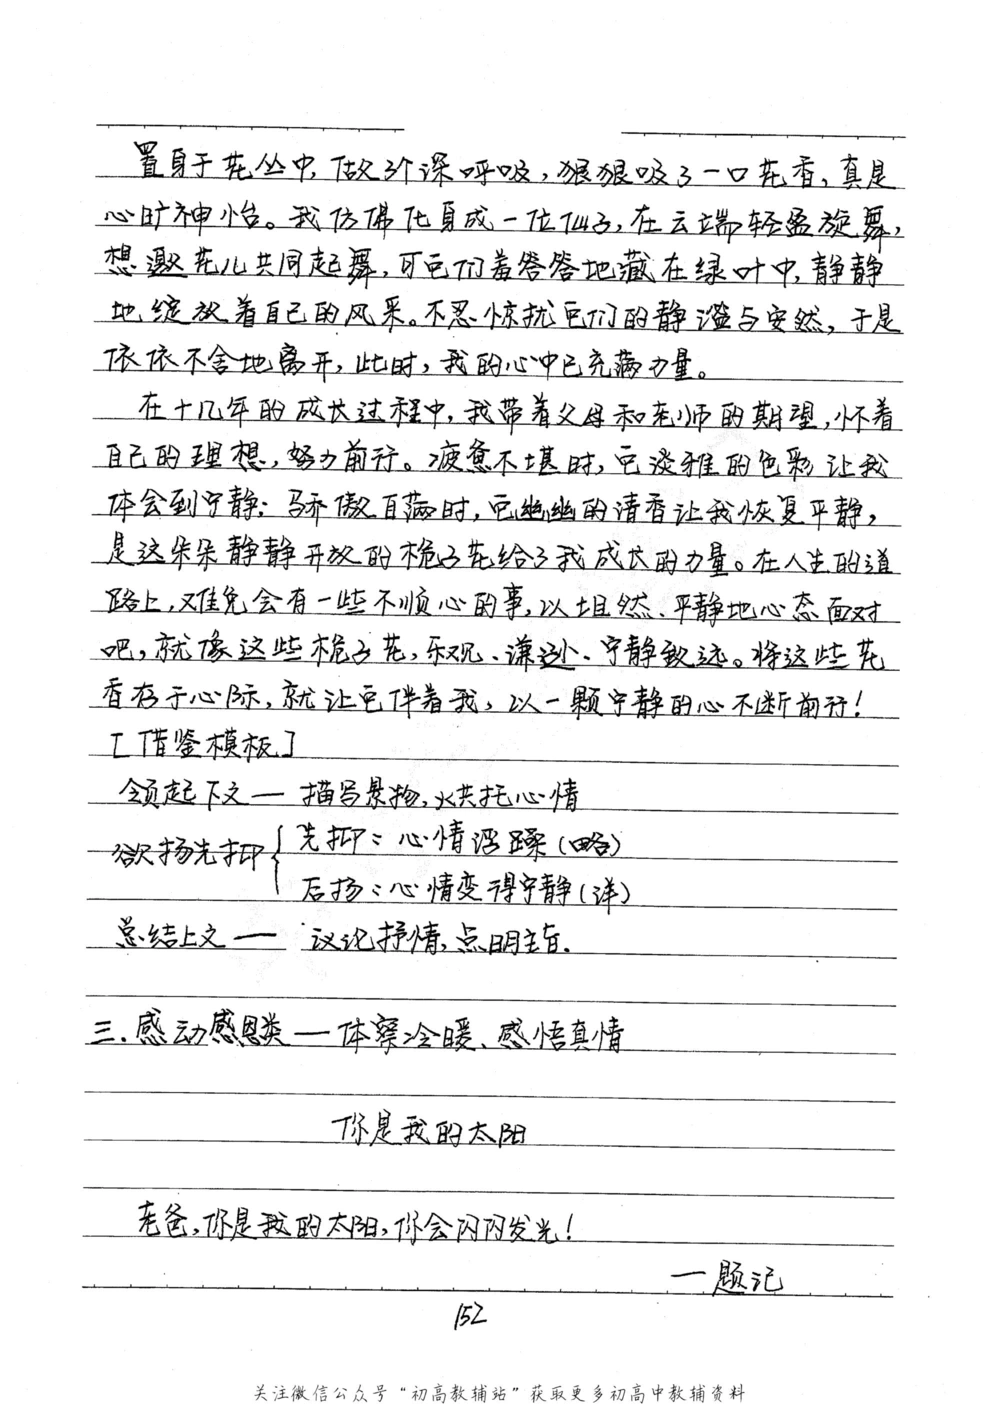 置身于花丛中,做了个深呼吸,狠狠吸了一口花香,真是
心旷神怡。我仿佛化身成一位仙子,在云端轻盈旋舞,
想邀花儿共同起舞,可它们羞答答地藏在绿叶中,静静
地绽放着自己的风采。不忍惊扰它们的静谧与安然,于是
依依不舍地离开,此时,我的心中已充满力量。
在十几年的成长过程中,我带着父母和老师的期望,怀着
自己的理想,努力前行。疲惫不堪时,它淡雅的色彩让我
体会到宁静;骄傲自满时,它幽幽的清香让我恢复平静,
是这朵朵静静开放的栀子花给了我成长的力量。在人生的道
路上,难免会有一些不顺心的事,以坦然、平静地心态面对
吧,就像这些栀子花,乐观、谦逊、宁静致远。将这些花
香存于心际,就让它伴着我,以一颗宁静的心不断前行!
[借鉴模板]
领起下文— 描写景物,烘托心情
欲扬先抑{ 先抑:心情浮躁(略)
后扬:心情变得宁静(详)
总结上文— 议论抒情,点明主旨.
三.感动感恩类—体察冷暖、感悟真情
你是我的太阳
老爸,你是我的太阳,你会闪闪发光!
—题记
152
关注微信公众号“初高教辅站”获取更多初高中教辅资料